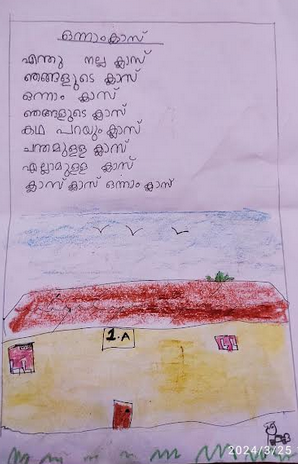 ഒന്നാംക്ലാസ്
എന്തു നല്ല ക്ലാസ്
ഞങ്ങളുടെ ക്ലാസ്
ഒന്നാം ക്ലാസ്
ഞങ്ങളുടെ ക്ലാസ്
കഥ പറയും ക്ലാസ്
ചന്തമുള്ള ക്ലാസ്
എല്ലാമുള്ള ക്ലാസ്
ക്ലാസ് ക്ലാസ് ഒന്നാം ക്ലാസ്
1.A
2024/3/25